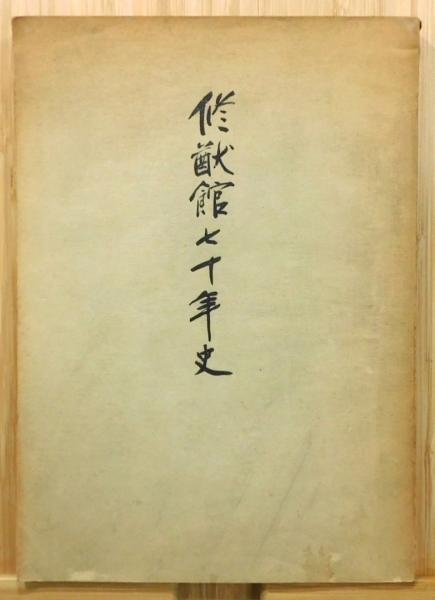 修猷館七十年史